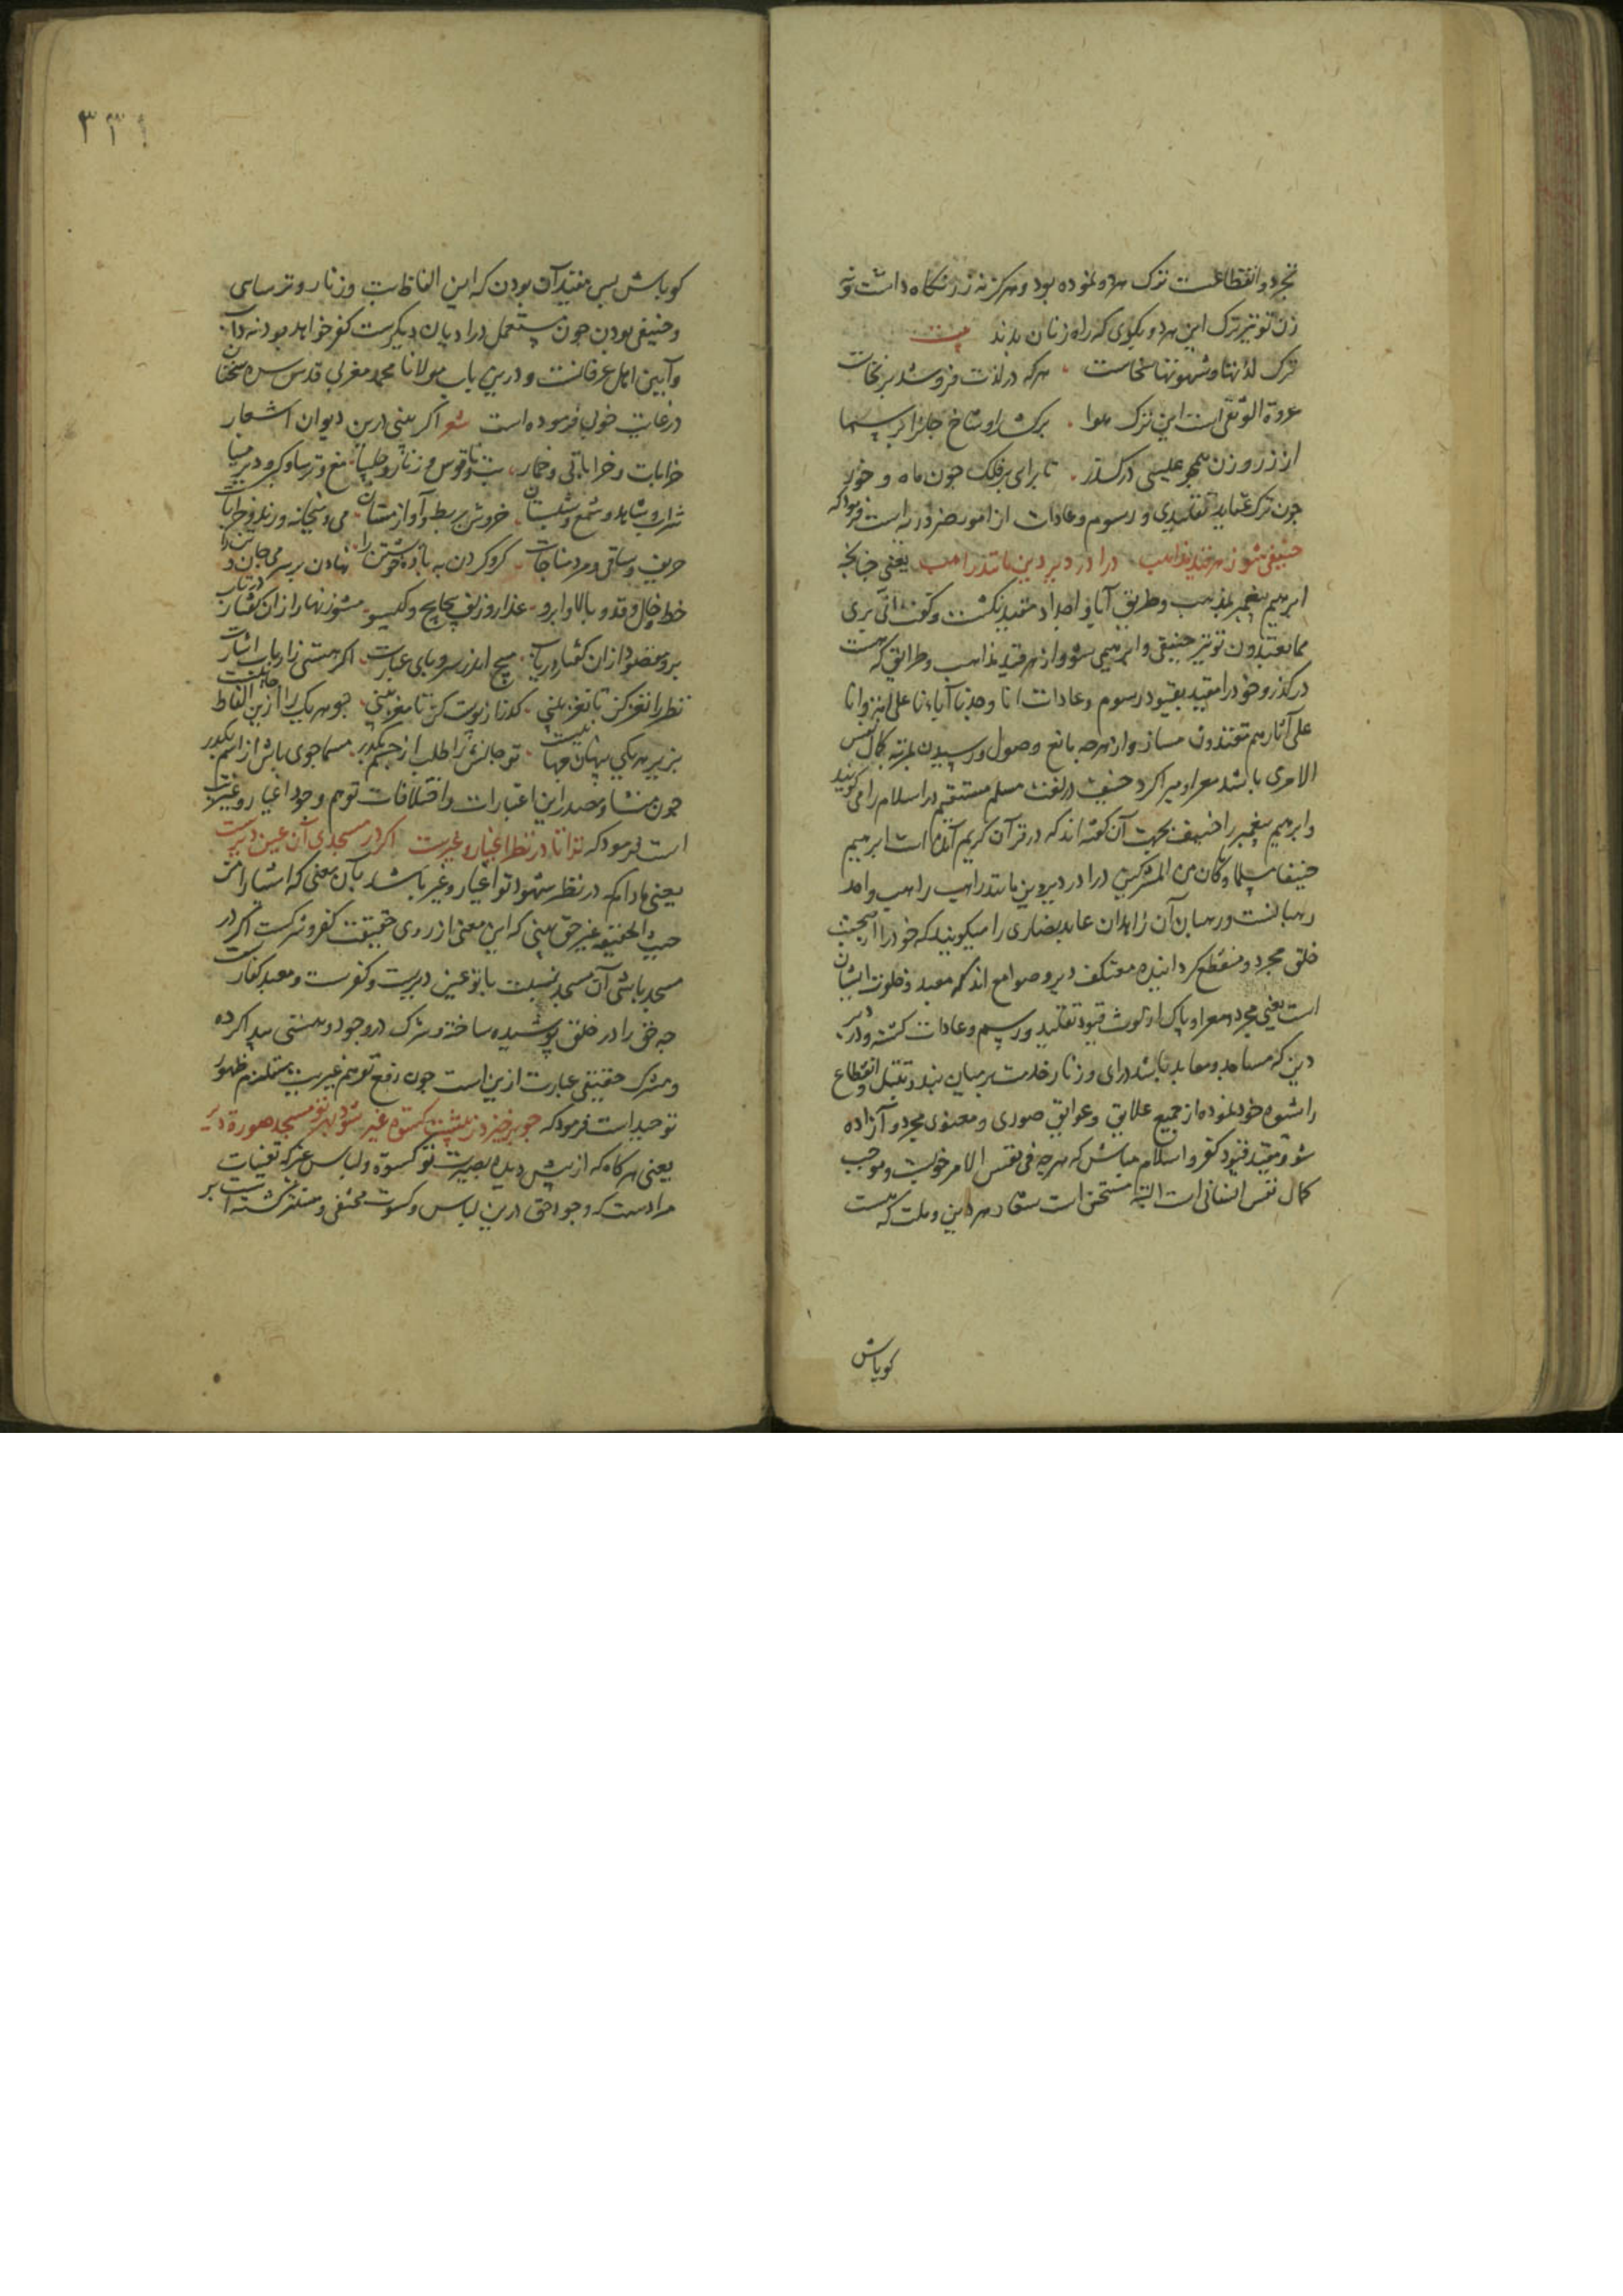 تجرد و انقطاعست ترک هر دو نموده بود و هرگز نه زر نگاه داشت و نه
زن تو نیز ترک این هر دو بگوی که راه زنان بدند بیت
ترک لذتها و شهوتها سخاست هر که در لذت فرو شد بر نخاست
عروة الوثقی است این ترک هوا برکشد او شاخ جانرا بر سما
از زر و زن همچو عیسی درگذر تا برای بر فلک چون ماه و خور
چون ترک عقاید تقلیدی و رسوم و عادات از امور ضروریه است فرمود که
حنیفی شو ز هر قید مذاهب درا در دیر دین مانند راهب یعنی چنانچه
ابرهیم پیغمبر بمذهب و طریق آبا و اجداد متقید نگشت و گفت انی بری
مما تعبدون تو نیز حنیفی و ابرهیمی شو و از هر قید مذاهب و طرایق که هست
درگذر و خود را مقید بقیود رسوم و عادات انا وجدنا آباءنا علی امة و انا
علی آثارهم مقتدون مساز و از هر چه مانع وصول و رسیدن بمرتبه کمال نفس
الامری باشد معرا و مبرا گرد حنیف در لغت مسلم مستقیم در اسلام را می گویند
و ابرهیم پیغمبر را حنیف بجهت آن گفته اند که در قرآن کریم آمده است ابرهیم
حنیفا مسلما و ما کان من المشرکین درا در دیر دین مانند راهب راهب واحد
رهبانست و رهبان آن زاهدان عابد نصاری را میگویند که خود را از صحبت
خلق مجرد و منقطع گردانیده معتکف دیر و صوامع اند که معبد و خلوت ایشان
است یعنی مجرد و معرا و پاک از لوث قیود تقلید و رسم و عادات گشته و در دیر
دین که مساجد و معابد باشد درای و زنار خدمت بر میان بند و تبتل و انقطاع
را شیوه خود نموده از جمیع علایق و عوایق صوری و معنوی مجرد و آزاده
شو و مقید قیود کفر و اسلام مباش که هر چه فی نفس الامر خوبست و موجب
کمال نفس انسانی است البته مستحسن است در هر دین و ملت که هست
کو باش
۳۳۱
کو باش پس مقید آن بودن که این الفاظ بت و زنار و ترسایی
و حنیفی بودن چون مستعمل در ادیان دیگرست کفر خواهد بود نه داب
و آیین اهل عرفانست و درین باب مولانا محمد مغربی قدس سره سخنان
در غایت خوبی فرموده است شعر اگر بینی درین دیوان اشعار
خرابات و خراباتی و خمار بت و ناقوس و زنار و چلیپا مغ و ترسا و گبر و دیر مینا
شراب و شاهد و شمع و شبستان خروش بربط و آواز مستان می و میخانه و رند و خرابات
حریف و ساقی و مرد مناجات گرو کردن به باده خویشتن را نهادن بر سر می جان و تن را
خط و خال و قد و بالا و ابرو عذار و زلف پیچاپیچ و گیسو مشو زنهار از ان گفتار در تاب
برو مقصود از ان گفتار دریاب مپیچ اندر سر و پای عبارت اگر هستی ز ارباب اشارت
نظر را نغز کن تا نغز بینی گذر از پوست کن تا مغز بینی چو هر یک را ازین الفاظ جانیست
بزیر هر یکی پنهان جهانیست تو جانش را طلب از جسم بگذر مسما جوی باش از اسم بگذر
چون منشا و مصدر این اعتبارات و اختلافات توهم وجود اغیار و غیریت
است فرمود که ترا تا در نظر اغیار و غیرست اگر در مسجدی آن عین دیرست
یعنی مادام که در نظر شهود تو اغیار و غیر باشد بآن معنی که اشیا را من
حیث الحقیقه غیر حق بینی که این معنی از روی حقیقت کفر و شرکست اگر در
مسجد باشی آن مسجد نسبت با تو عین دیرست و کفرست و معبد کفارست
چه حق را در خلق پوشیده ساخته و شرک در وجود و هستی پیدا کرده
و شرک حقیقی عبارت ازین است چون رفع توهم غیریت مستلزم ظهور
توحید است فرمود که چو برخیزد ز پیشت کسوه غیر شود بهر تو مسجد صورة دیر
یعنی هرگاه که از پیش دیده بصیرت تو کسوة و لباس غیر که تعینات
مرادست که وجود حق درین لباس و کسوت مختفی و مستتر گشته است بر